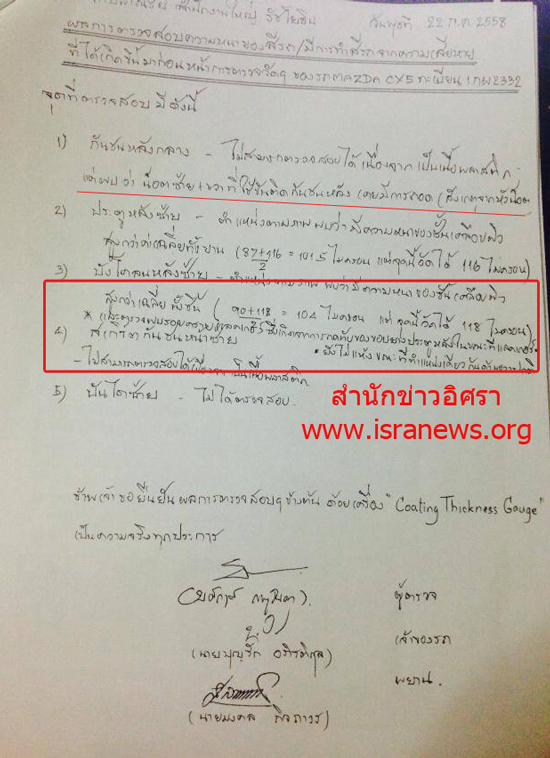 สำนักงานใหญ่ วันพุธที่ 22 ก.ค. 2558
ผลการตรวจสอบความหนาของสีรถ/มีการทำสีรถจากความเสียหาย
ที่ได้เกิดขึ้นมาก่อนหน้าการตรวจวัดๆ ของรถ MAZDA CX5 ทะเบียน 1กผ2332
จุดที่ตรวจสอบ มีดังนี้
1) กันชนหลังกลาง - ไม่สามารถตรวจสอบได้ เนื่องจาก เป็นเนื้อพลาสติก
แต่พบว่า น็อตซ้าย+ขวาที่ใช้ขันติดกันชนหลัง เคยมีการถอด (สังเกตุจากหัวน็อต)
2) ประตูหลังซ้าย - ตำแหน่งตามภาพ พบว่ามีความหนาของชั้นเคลือบผิว
สูงกว่าค่าเฉลี่ยทั้งบาน (87+116/2 = 101.5 ไมครอน แต่จุดนี้วัดได้ 116 ไมครอน)
3) บังโคลนหลังซ้าย - ตำแหน่งตามภาพ พบว่ามีความหนาของชั้นเคลือบผิว
สูงกว่าเฉลี่ยทั้งชิ้น (90+118/2 = 104 ไมครอน แต่จุดนี้วัดได้ 118 ไมครอน)
* และตรวจพบรอยของแลคเกอร์ซึ่งเกิดจากการกดทับของขอบยางประตูหลังในขณะที่แลคเกอร์
ยังไม่แห้ง ขณะที่ตำแหน่งเดียวกันด้านขวาปกติ
4) สเกิร์ต กันชนหน้าซ้าย
- ไม่สามารถตรวจสอบได้เนื่องจากเป็นเนื้อพลาสติก
5) บันไดซ้าย - ไม่ได้ตรวจสอบ.
สำนักข่าวอิศรา
www.isranews.org
ข้าพเจ้า ขอยืนยันผลการตรวจสอบๆ ข้างต้น ด้วยเครื่อง "Coating Thickness Gauge"
เป็นความจริงทุกประการ
ผู้ตรวจ
เจ้าของรถ
พยาน.
(นายมงคล กิจถาวร)